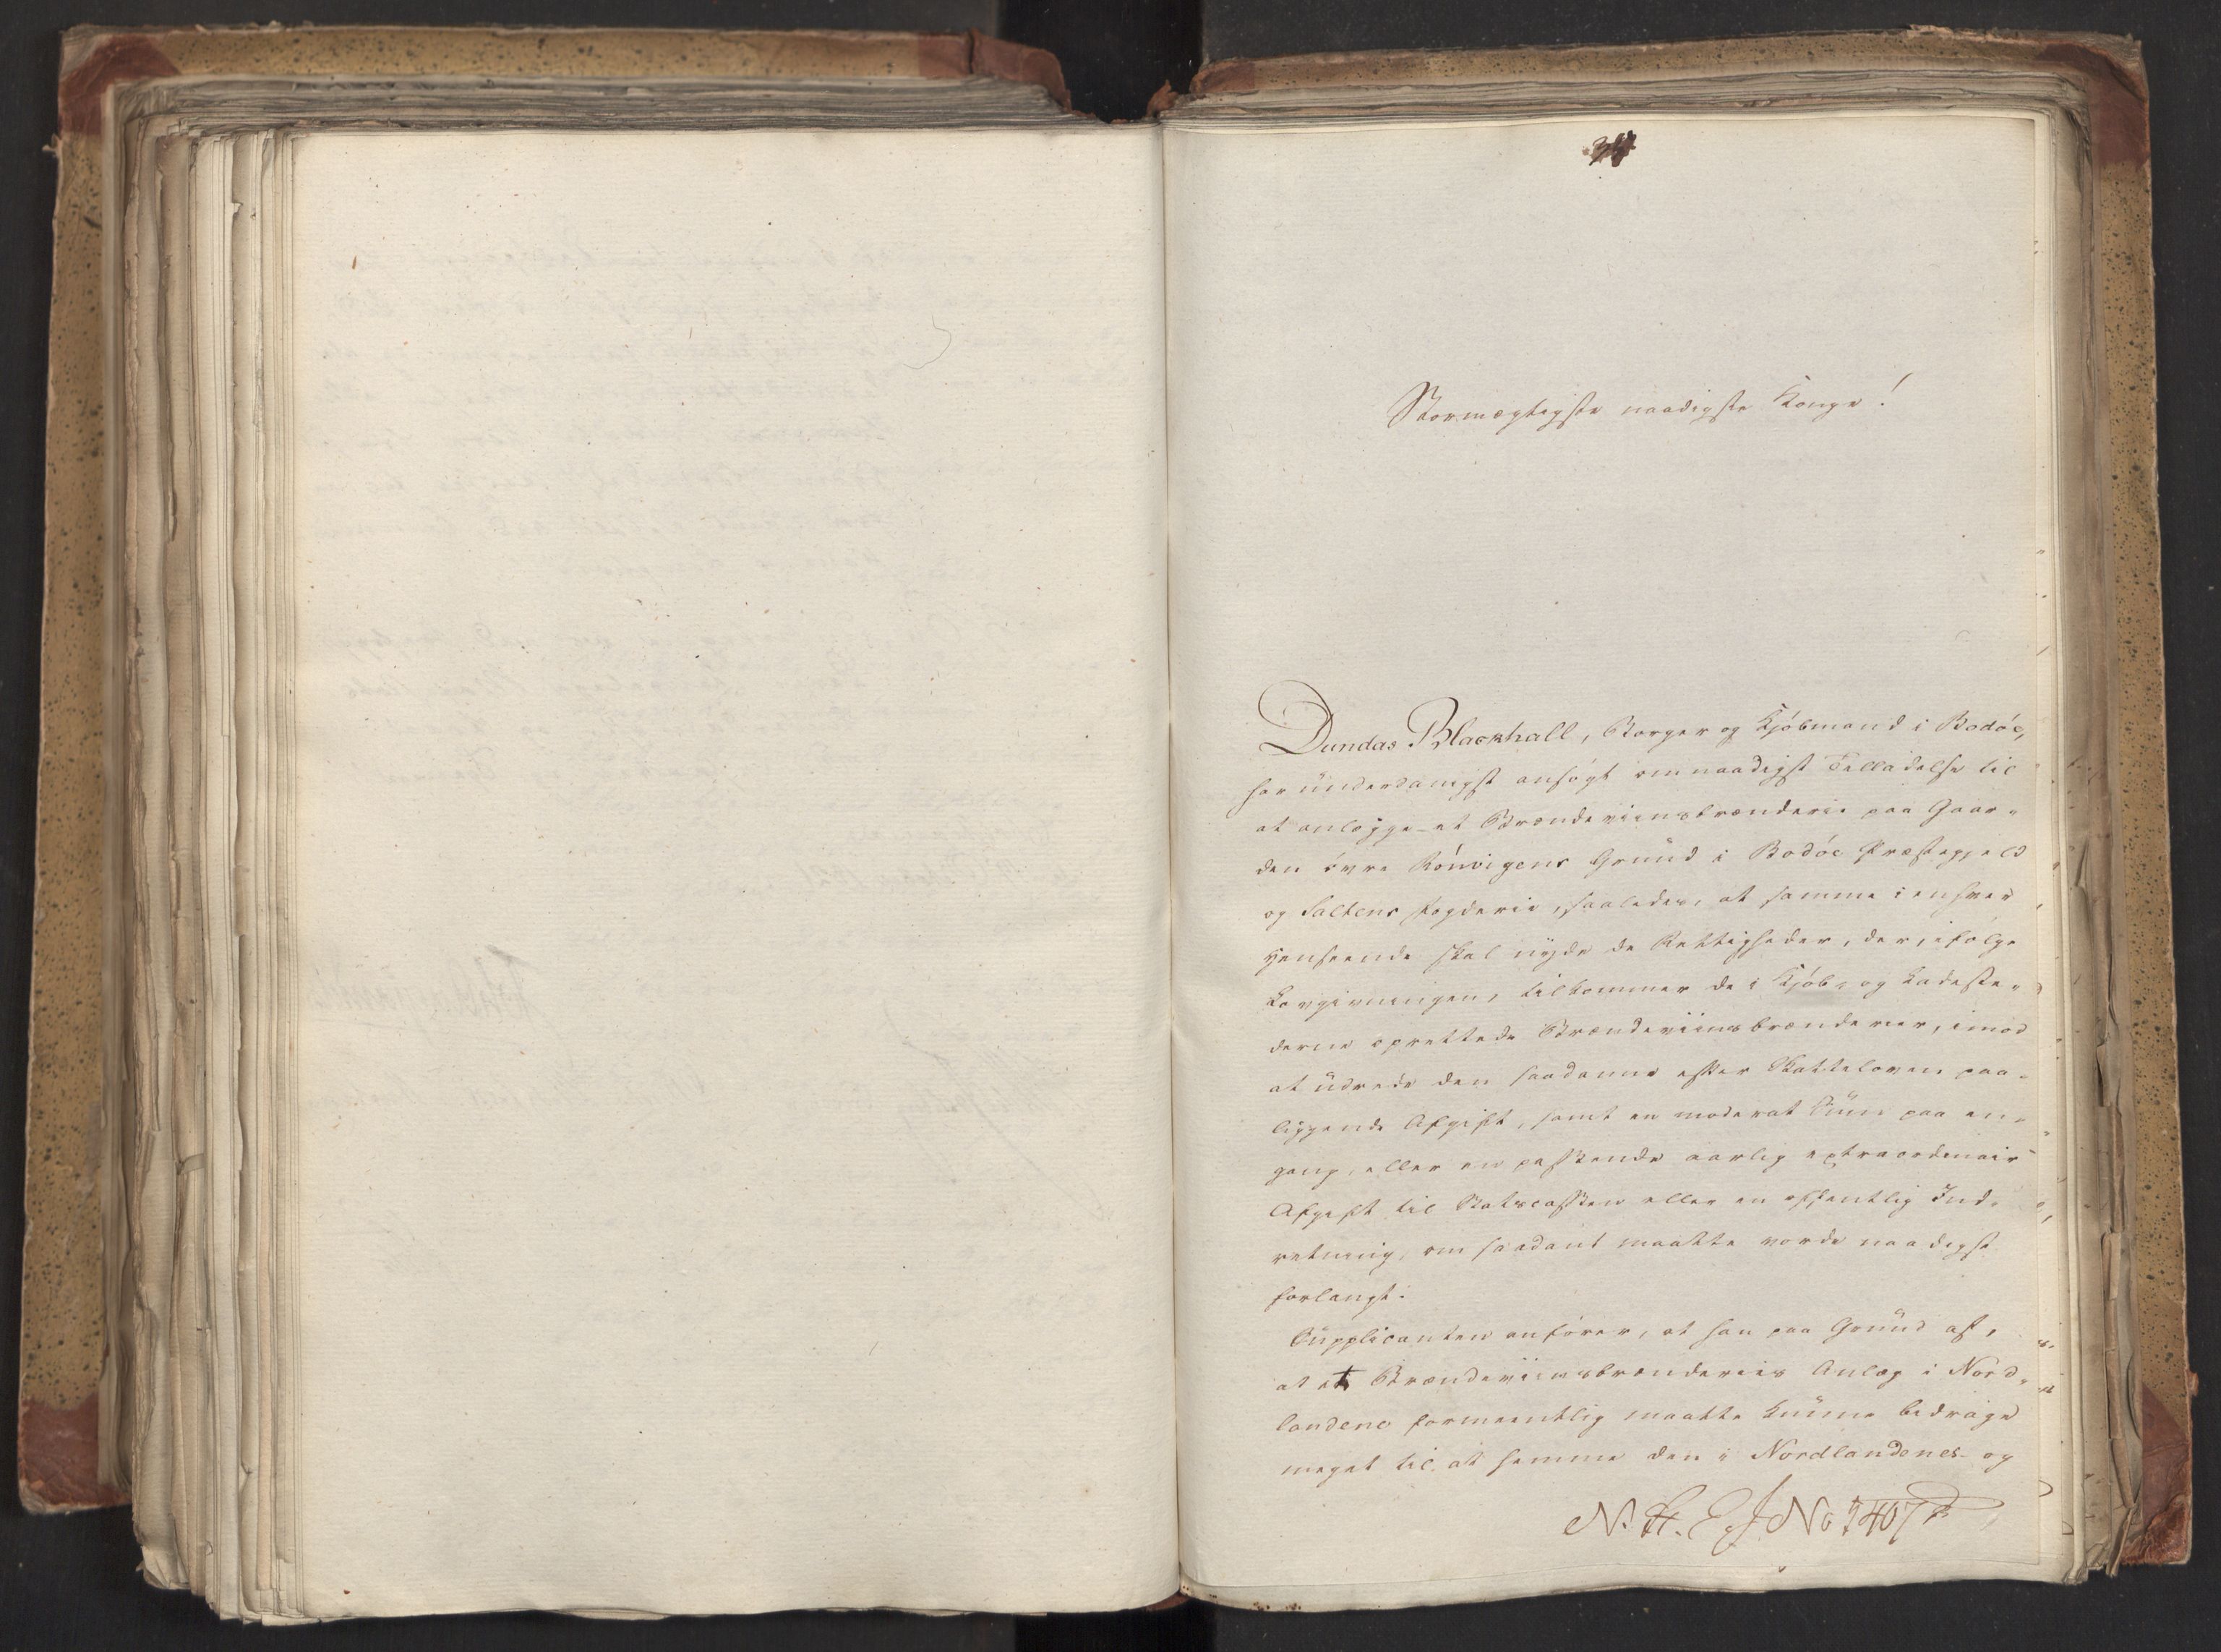 Stormægtigste naadigste Konge!
Dundas Blackhall, Borger og Kjöbmand i Bodöe,
har underdanigst ansögt om naadigst Tilladelse til
at anlægge et Brændeviinsbrænderie paa Gaar-
den övre Rönvigens Grund i Bodöe Præstegjeld
og Saltens Fogderie, saaledes, at samme i enhver
Henseende skal nyde de Rettigheder, der, ifölge
Lovgivningen, tilkommer de i Kjöb- og Ladeste-
derne oprettede Brændeviinsbrænderier, imod
at udrede den saadanne efter Skatteloven paa-
liggende Afgift, samt en moderat Sum paa en-
gang, eller en passende aarlig extraordinair
Afgift til Statscassen eller en offentlig Ind-
retning, om saadant maatte vorde naadigst
forlangt.
Supplicanten anförer, at han paa Grund af,
at et Brændeviinsbrænderies Anlæg i Nord-
landene formeentlig maatte kunne bidrage
meget til at hemme den i Nordlandenes og
N. H. E. J No 7407